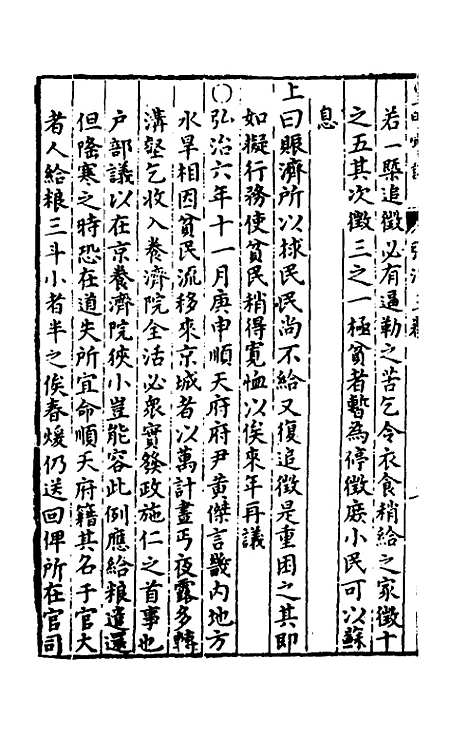 若一槩追徵必有逼勒之苦乞令衣食稍給之家徵十
之五其次徵三之一極貧者暫為停徵庶小民可以蘇
息
上曰賑濟所以捄民民尚不給又復追徵是重困之其即
如擬行務使貧民稍得寬恤以俟來年再議
○弘治六年十一月庚申順天府府尹黄傑言畿内地方
水旱相因貧民流移來京城者以萬計晝丐夜露多轉
溝壑乞收入養濟院全活必衆實發政施仁之首事也
户部議以在京養濟院狹小豈能容此例應給粮遣還
但隆寒之時恐在道失所宜命順天府籍其名于官大
者人給粮三斗小者半之俟春煖仍送回俾所在官司